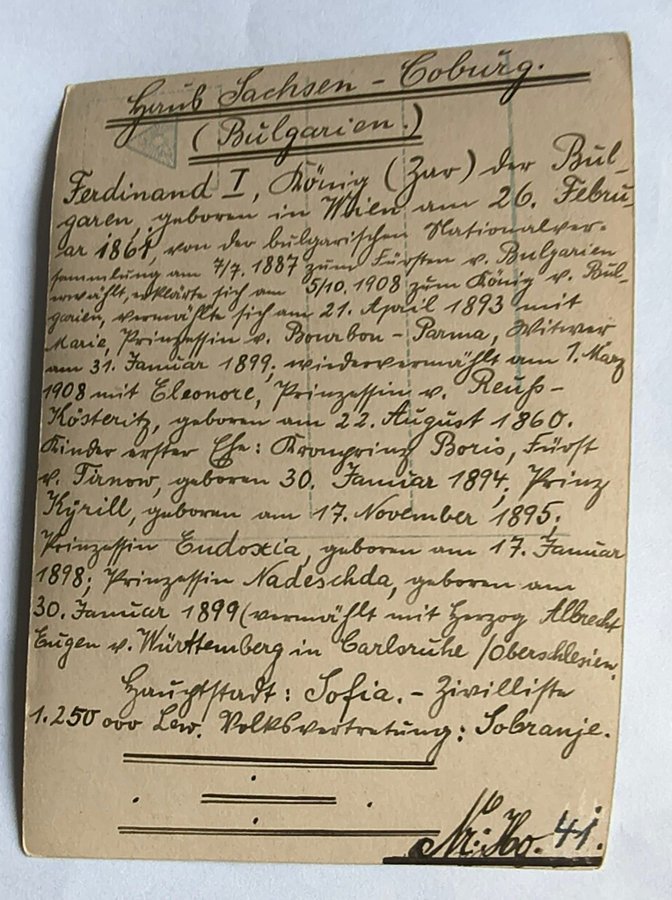 Haus Sachsen - Coburg.
(Bulgarien.)
Ferdinand I, König (Zar) der Bul-
garen, geboren in Wien am 26. Febru-
ar 1861, von der bulgarischen Nationalver-
sammlung am 7/7. 1887 zum Fürsten v. Bulgarien
erwählt, erklärte sich am 5/10. 1908 zum König v. Bul-
garien, vermählte sich am 21. April 1893 mit
Marie, Prinzessin v. Bourbon - Parma, Witwer
am 31. Januar 1899; wiedervermählt am 1. März
1908 mit Eleonore, Prinzessin v. Reuß-
Kösteritz, geboren am 22. August 1860.
Kinder erster Ehe: Kronprinz Boris, Fürst
v. Tirnow, geboren 30. Januar 1894; Prinz
Kyrill, geboren am 17. November 1895;
Prinzessin Eudoxia, geboren am 17. Januar
1898; Prinzessin Nadeschda, geboren am
30. Januar 1899 (vermählt mit Herzog Albrecht
Eugen v. Württemberg in Carlsruhe /Oberschlesien.
Hauptstadt: Sofia. - Zivilliste
1.250 000 Lew. Volksvertretung: Sobranje.
41.